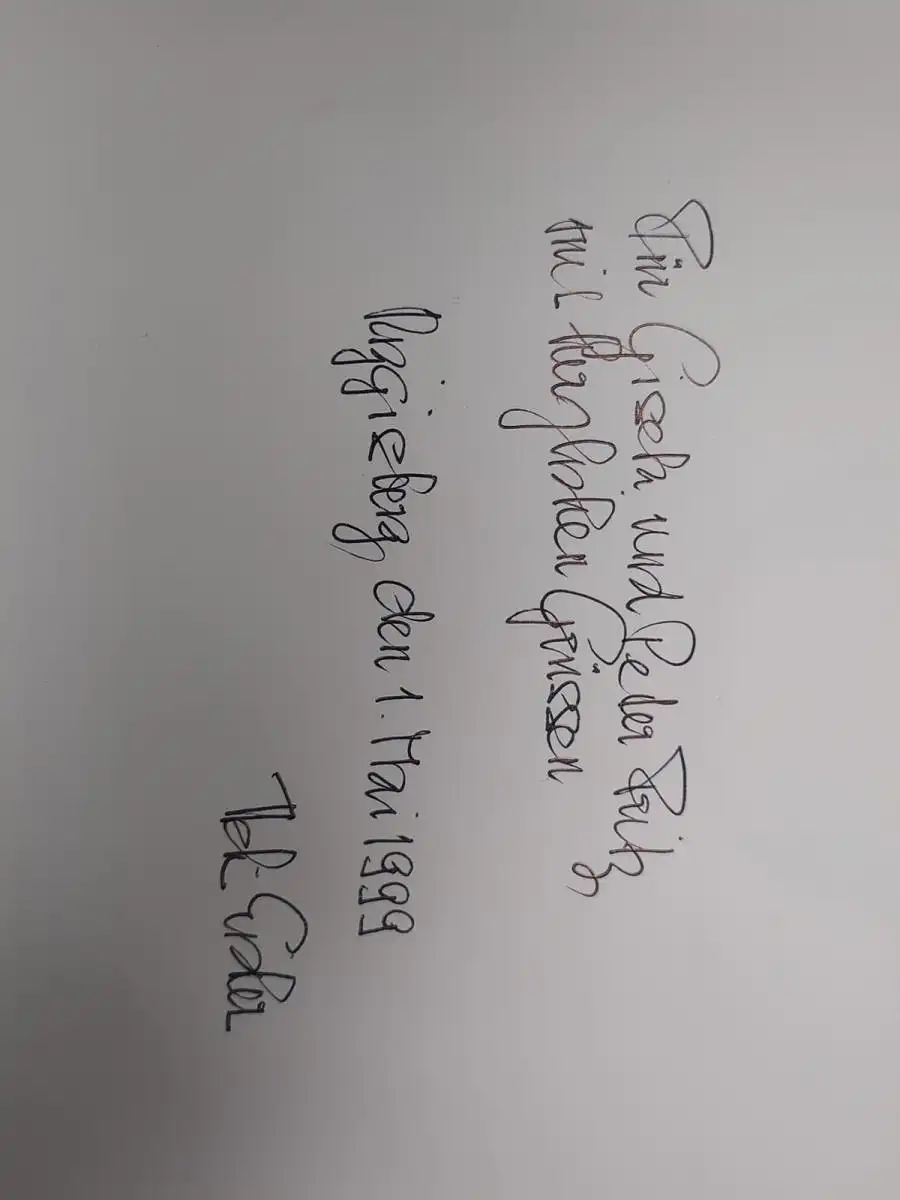 Für Gisela und Peter Fritz
mit herzlichen Grüssen
Riggisberg, den 1. Mai 1999